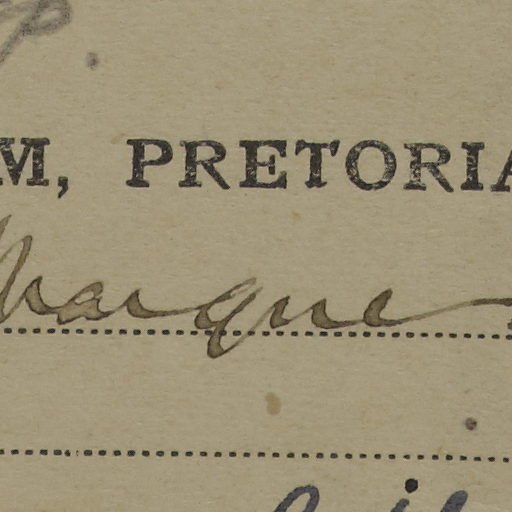 M, PRETORIA
Marque